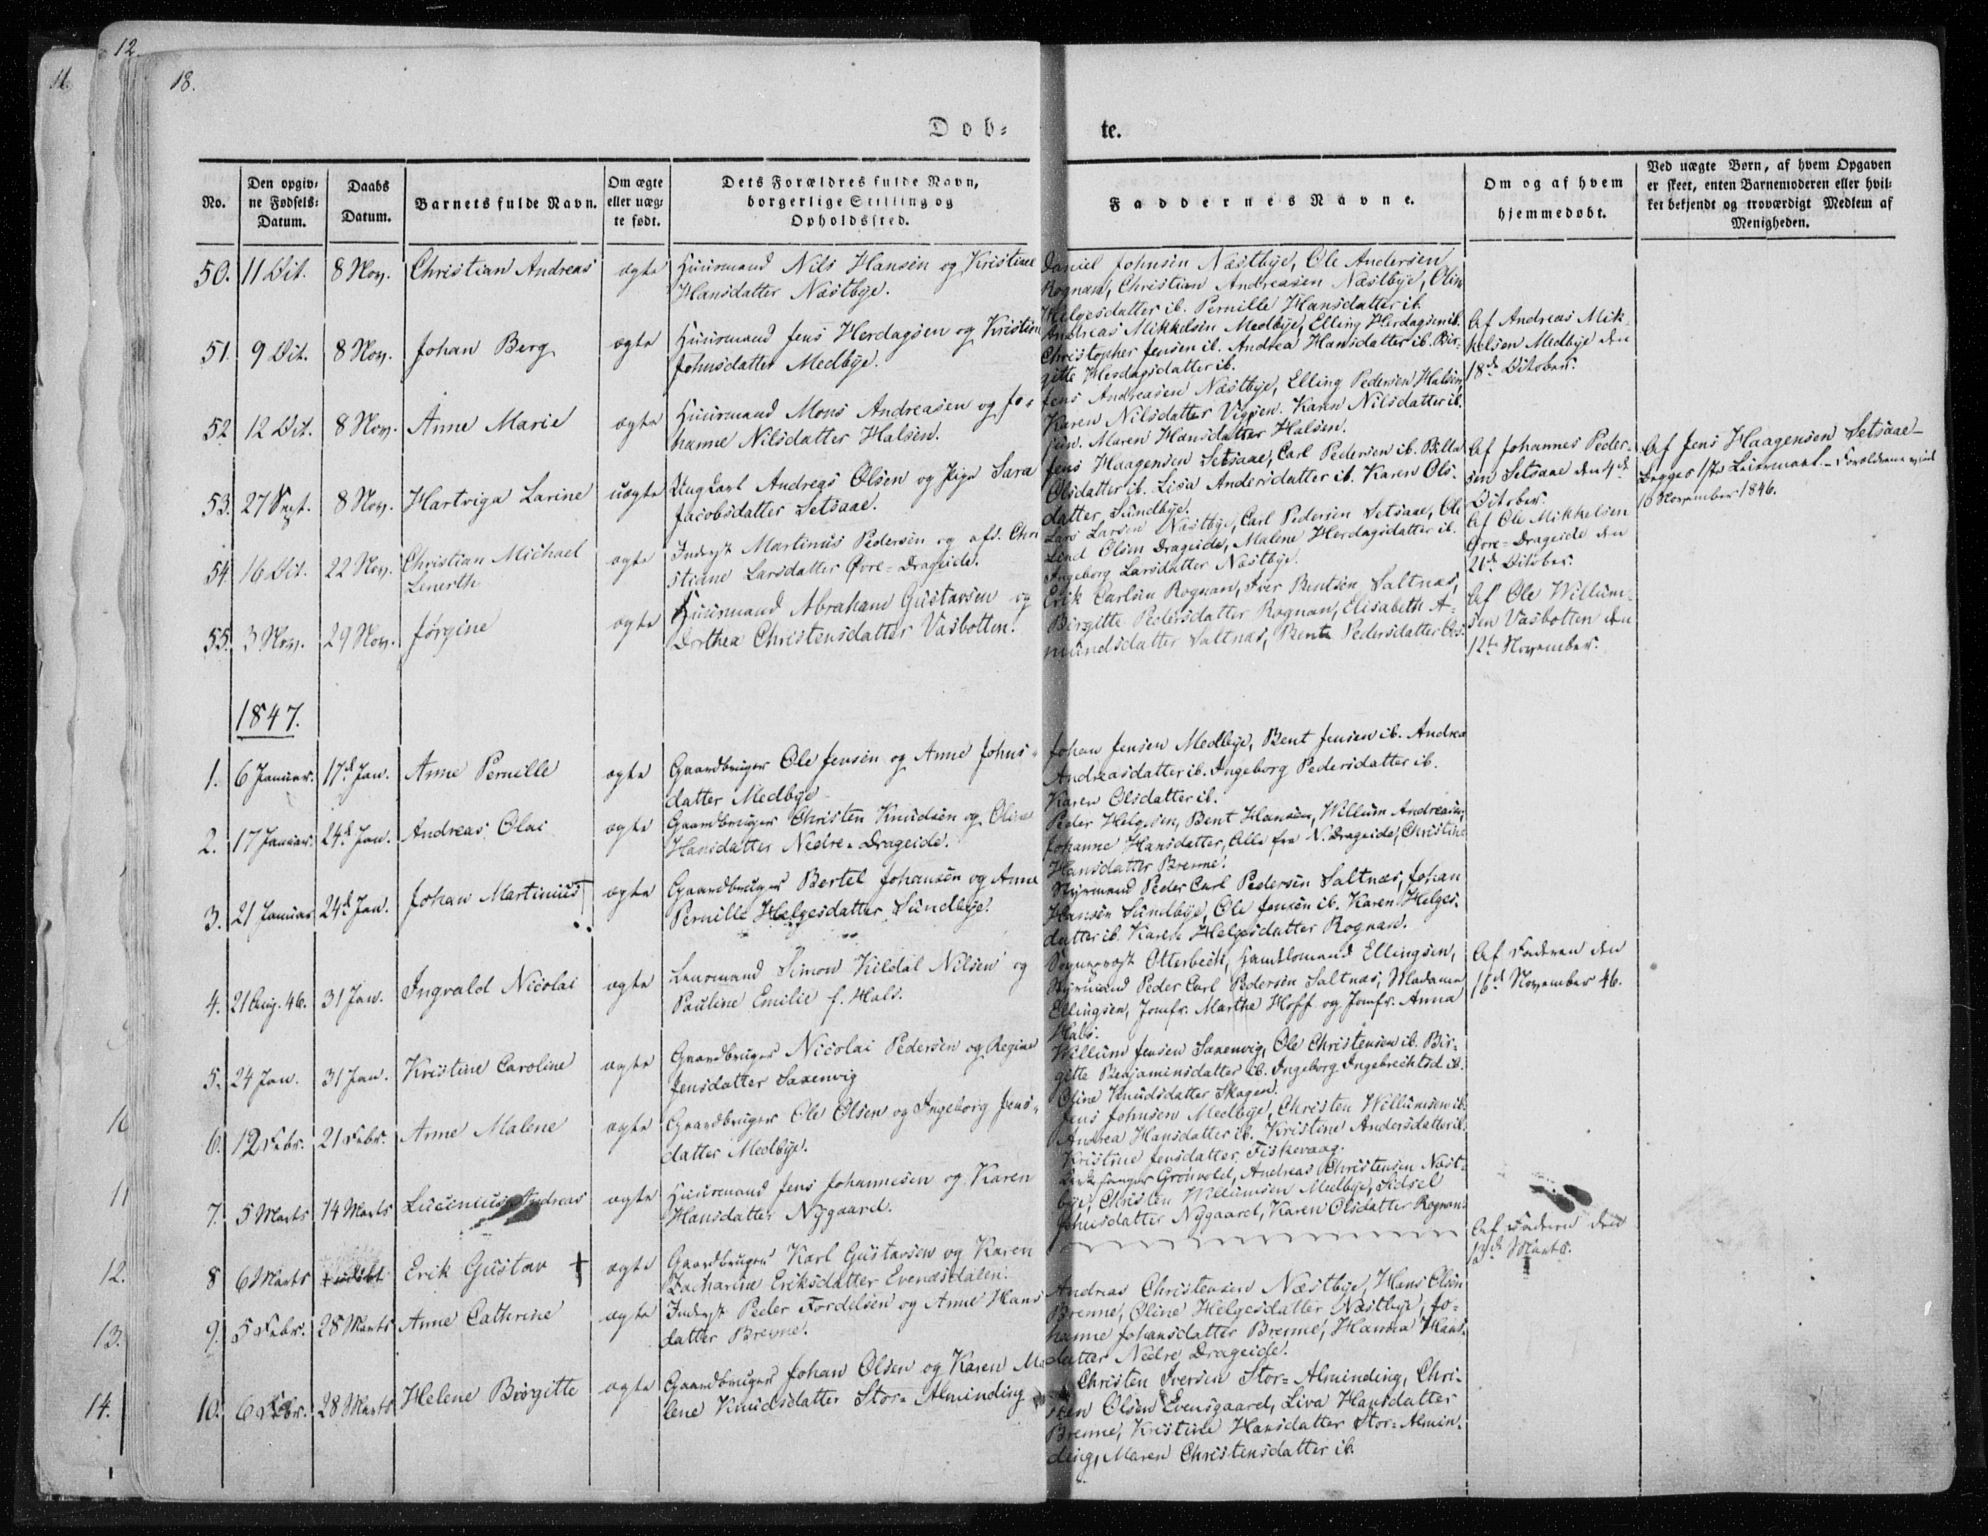 11.
12.
18.
Døb-
te.
No.
Den opgiv-
ne Fødsels-
Datum.
Daabs
Datum.
Barnets fulde Navn.
Om ægte
eller uæg-
te født.
Dets Forældres fulde Navn,
borgerlige Stilling og
Opholdssted.
Faddernes Navne.
Om og af hvem
hjemmedøbt.
Ved uægte Børn, af hvem Opgaven
er skeet, enten Barnemoderen eller hvil-
ket bekjendt og troværdigt Medlem af
Menigheden.
50. 11 Oct. 8 Nov. Christian Andreas ægte Huusmand Nils Hansen og Kristine
Hansdatter Næstbye.
Daniel Johnsen Næstbye, Ole Andersen
Rognan, Christian Andreasen Næstbye, Olin
Helgesdatter ib. Pernille Hansdatter ib.
51. 9 Oct. 8 Nov. Johan Berg ægte Huusmand Jens Herdagsen og Kristine
Johnsdatter Medbye.
Andreas Mikkelsen Medbye, Elling Herdagsen ib.
Christopher Jensen ib. Andrea Hansdatter ib. Bir-
gitte Herdagsdatter ib.
Af Andreas Mik-
kelsen Medbye den
18de October.
52 12 Oct. 8 Nov. Anne Marie ægte Huusmand Mons Andreasen og Jo-
hanne Nilsdatter Halsen.
Jens Andreasen Næstbye, Elling Pedersen Halsen,
Karen Nilsdatter Vigsen. Karen Nilsdatter ib.
Maren Hansdatter Halsen.
53. 27 Sept. 8 Nov. Hartviga Larine uægte Ungkarl Andreas Olsen og Pige Sara
Jacobsdatter Setsaae.
Jens Haagensen Setsaae, Carl Pedersen ib. Pilla
Olsdatter ib. Lisa Andersdatter ib. Karen Ols-
datter Sundbye.
Af Johannes Peder-
sen Setsaae den 4de
October.
Af Jens Haagensen Setsaae
Begges 1ste Leiermaal.
16 November 1846.
54 16 Oct. 22 Nov. Christian Michael
Lenerth ægte Inderst Martinus Pedersen og afd. Chri
stiane Larsdatter Øvre-Drageide.
Lars Larsen Næstbye, Carl Pedersen Setsaae, Ole
Lind Olsen Drageide, Malene Herdagsdatter ib.
Ingeborg Larsdatter Næstbye.
Af Ole Mikkelsen
Øvre-Drageide den
21de October.
55. 3 Nov. 29 Nov. Jørgine ægte Huusmand Abraham Gustavsen og
Dorthea Christensdatter Vasbotten.
Erik Carlsen Rognan, Iver Bentsen Saltnæs,
Birgitte Pedersdatter Rognan, Elisabeth A-
mundsdatter Saltnæs, Bente Pedersdatter
Af Ole Willum-
sen Vasbotten den
12te November.
1847.
1. 6 Januar. 17de Jan. Anne Pernille ægte Gaardbruger Ole Jensen og Anne Johns-
datter Medbye
Johan Jensen Medbye, Bent Jensen ib. Andrea
Andreasdatter ib. Ingeborg Pedersdatter ib.
Karen Olsdatter ib.
2. 17 Januar. 24de Jan. Andreas Olai ægte Gaardbruger Christen Knudsen og Oline
Hansdatter Nedre-Drageide.
Peder Helgesen, Bent Hansen, Willum Andreasen,
Johanne Hansdatter, Alle fra N. Drageide, Christine
Hansdatter Brenne.
3. 21 Januar 24de Jan. Johan Martinius † ægte Gaardbruger Bertel Johansen og Anne
Pernille Helgesdatter Sundbye.
Styrmand Peder Carl Pedersen Saltnæs, Johan
Hansen Sundbye, Ole Jensen ib. Karen Helges-
datter ib. Karen Helgesdatter Rognan.
4. 21 Aug. 46. 31 Jan. Ingvald Nicolai ægte Lensmand Simon Kildal Nilsen og
Pauline Emilie f. Hals.
Sogneprest Otterbeck, Handlsmand Ellingsen,
Styrmand Peder Carl Pedersen Saltnæs, Madame
Ellingsen, Jomfr. Marthe Hoff og Jomfr. Anna
Hals.
Af Faderen den
16de November 46.
5. 24 Jan. 31 Jan. Kristine Caroline ægte Gaardbruger Nicolai Pedersen og Regine
Jensdatter Saxenvig
Willum Jensen Saxenvig, Ole Christensen ib. Bir-
gitte Benjaminsdatter ib. Ingeborg Ingebrechtsd ib.
Oline Knudsdatter Skagen.
6. 12 Febr. 21 Febr. Anne Malene ægte Gaardbruger Ole Olsen og Ingeborg Jens-
datter Medbye.
Jens Johnsen Medbye, Christen Willumsen ib.
Andrea Hansdatter ib. Kristine Andersdatter ib.
Kristine Jensdatter Fiskevaag.
7. 5 Marts 14 Marts Lucinius Andreas ægte Huusmand Jens Johannesen og Karen
Hansdatter Nygaard.
Grønvold, Andreas Christensen Næst-
bye, Christen Willumsen Medbye, Sidsel
Johnsdatter Nygaard, Karen Olsdatter Rognan.
8 6 Marts Erik Gustav † ægte Gaardbruger Karl Gustavsen og Karen
Zacharine Eriksdatter Evensdalen.
Af Faderen den
13de Marts.
9. 5 Febr. 28 Marts Anne Cathrine ægte Inderst Peder Fordelsen og Anne Hans
datter Brenne.
Andreas Christensen Næstbye, Hans Olsen
Brenne, Oline Helgesdatter Næstbye, Jo-
hanne Johansdatter Brenne, Hanna Hans-
datter Nedre Drageide.
10. 6 Febr. 28 Marts Helene Birgitte ægte Gaardbruger Johan Olsen og Karen Ma
lene Knudsdatter Stor-Alminding
Christen Iversen Stor-Alminding, Chri-
sten Olsen Evensgaard, Liva Hansdatter
Brenne, Kristine Hansdatter Stor-Almin-
ding, Maren Christensdatter ib.
10
11
12.
13.
14.